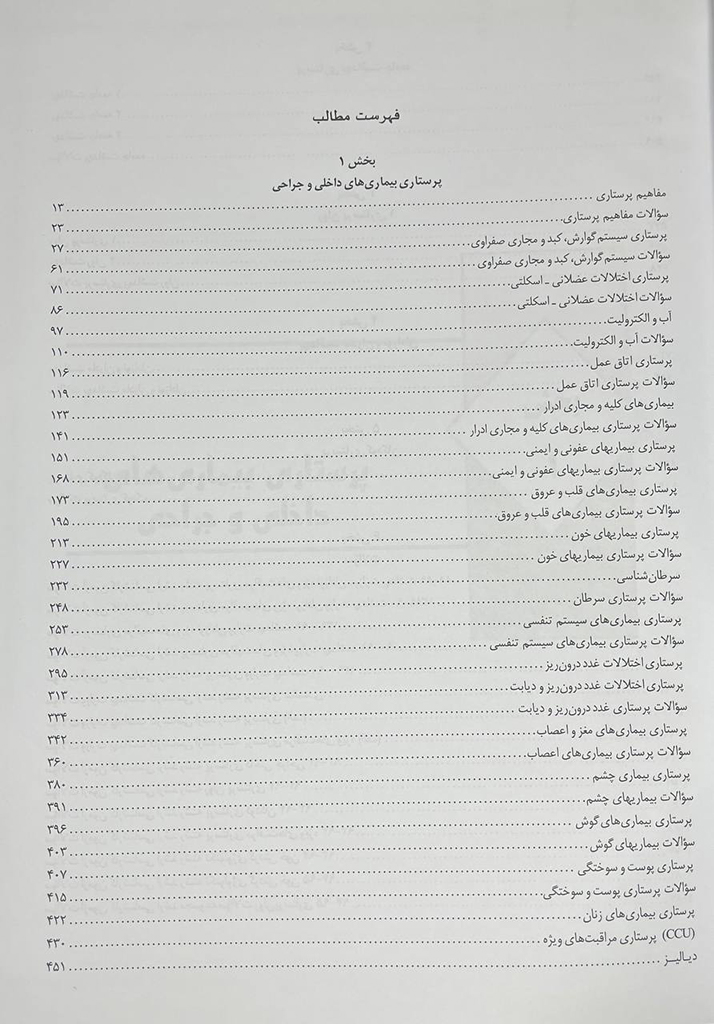 فهرست مطالب
بخش ۱
پرستاری بیماری‌های داخلی و جراحی
مفاهیم پرستاری ........ ۱۳
سؤالات مفاهیم پرستاری ........ ۲۳
پرستاری سیستم گوارش، کبد و مجاری صفراوی ........ ۲۷
سؤالات سیستم گوارش، کبد و مجاری صفراوی ........ ۶۱
پرستاری اختلالات عضلانی ـ اسکلتی ........ ۷۱
سؤالات اختلالات عضلانی ـ اسکلتی ........ ۸۶
آب و الکترولیت ........ ۹۷
سؤالات آب و الکترولیت ........ ۱۱۰
پرستاری اتاق عمل ........ ۱۱۶
سؤالات پرستاری اتاق عمل ........ ۱۱۹
بیماری‌های کلیه و مجاری ادرار ........ ۱۲۳
سؤالات پرستاری بیماری‌های کلیه و مجاری ادرار ........ ۱۴۱
پرستاری بیماریهای عفونی و ایمنی ........ ۱۵۱
سؤالات پرستاری بیماریهای عفونی و ایمنی ........ ۱۶۸
پرستاری بیماری‌های قلب و عروق ........ ۱۷۳
سؤالات پرستاری بیماری‌های قلب و عروق ........ ۱۹۵
پرستاری بیماریهای خون ........ ۲۱۳
سؤالات پرستاری بیماریهای خون ........ ۲۲۷
سرطان‌شناسی ........ ۲۳۲
سؤالات پرستاری سرطان ........ ۲۴۸
پرستاری بیماری‌های سیستم تنفسی ........ ۲۵۳
سؤالات پرستاری بیماری‌های سیستم تنفسی ........ ۲۷۸
پرستاری اختلالات غدد درون‌ریز ........ ۲۹۵
پرستاری اختلالات غدد درون‌ریز و دیابت ........ ۳۱۳
سؤالات پرستاری غدد درون‌ریز و دیابت ........ ۳۳۴
پرستاری بیماری‌های مغز و اعصاب ........ ۳۴۲
سؤالات پرستاری بیماری‌های اعصاب ........ ۳۶۰
پرستاری بیماری چشم ........ ۳۸۰
سؤالات بیماریهای چشم ........ ۳۹۱
پرستاری بیماری‌های گوش ........ ۳۹۶
سؤالات بیماریهای گوش ........ ۴۰۳
پرستاری پوست و سوختگی ........ ۴۰۷
سؤالات پرستاری پوست و سوختگی ........ ۴۱۵
پرستاری بیماری‌های زنان ........ ۴۲۲
(CCU) پرستاری مراقبت‌های ویژه ........ ۴۳۰
دیالیز ........ ۴۵۱